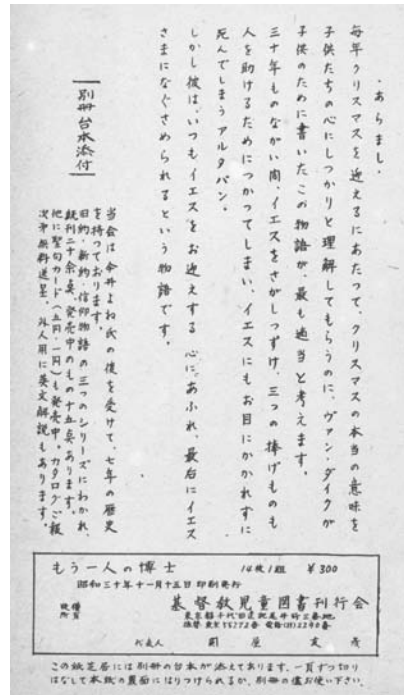 ・あらまし・
毎年クリスマスを迎えるにあたって、クリスマスの本当の意味を
子供たちの心にしっかりと理解してもらうのに、ヴァン・ダイクが
子供のために書いたこの物語が、最も適当と考えます。
三十年ものながい間、イエスをさがしつずけ、三つの捧げものも
人を助けるためにつかってしまい、イエスにもお目にかかれずに
死んでしまうアルタバン。
しかし彼は、いつもイエスをお迎えする心にあふれ、最后にイエス
さまになぐさめられるという物語です。
別冊台本添付
当会は今井よね氏の後を受けて、七年の歴史
を持っております。
旧約・新約・信仰物語の三つのシリーズにわかれ、
既刊二十余点、発売中のもの十五点あります。
他に聖句カード(五円・一円)も発売中。カタログご報
次第無料送呈。外人用に英文解説もあります。
もう一人の博士 14枚1組 ¥300
昭和三十年十一月十五日印刷発行
基督教児童図書刊行会
東京都千代田区
代表人
この紙芝居には別冊の台本が添えてあります。一頁ずつ切り
はなして本紙の裏面にはりつけられるか、別冊の儘お使い下さい。